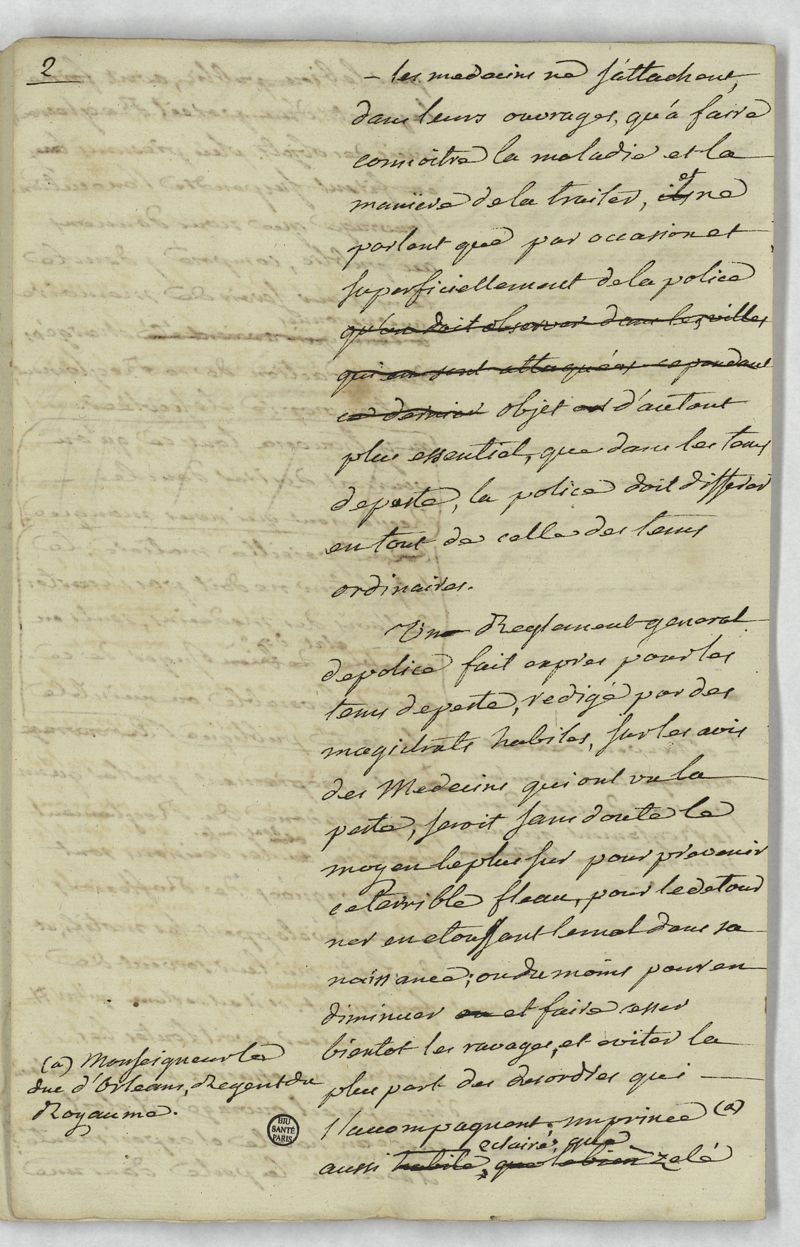 2
- les medecins ne s'attachent,
dans leurs ouvrages, qu'à faire
connoitre la maladie et la
maniere de la traiter, ils et ne
parlent que par occasion et
superficiellement de la police
qu'on doit observer dans les villes
qui en sont attaquées cependant
ce dernier objet est d'autant
plus essentiel, que dans les tems
de peste, la police doit differer
en tout de celle des tems
ordinaires.
Un Reglement general
de police fait expres pour les
tems de peste, redigé par des
magistrats habiles, sur les avis
des Medecins qui ont vu la
peste, seroit sans doute le
moyen le plus sur pour prevenir
ce terrible fleau, pour le detour
ner en etouffant le mal dans sa
naissance; ou du moins pour en
diminuer ou et faire cesser
bientot les ravages, et eviter la
plus part des desordres qui
l'accompagnent. un prince (a)
aussi habile, eclairé, que que le bien zelé
(a) Monseigneur le
duc d'Orleans, Regent du
Royaume.
BIU
SANTÉ
PARIS